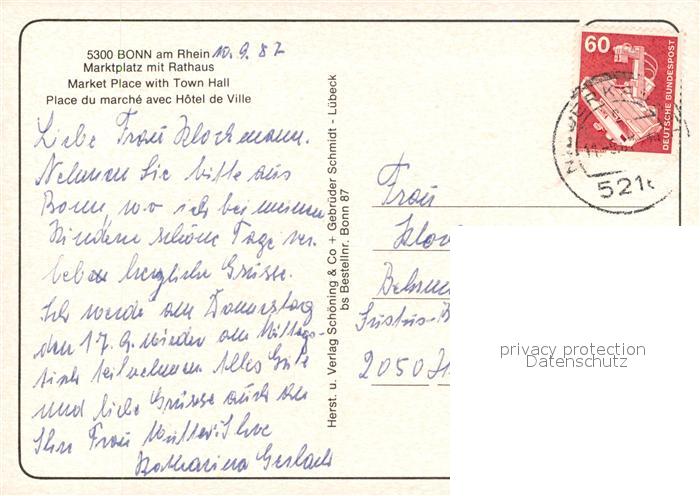 5300 BONN am Rhein 10.9.87
Marktplatz mit Rathaus
Market Place with Town Hall
Place du marché avec Hôtel de Ville
Liebe Frau Klockmann.
Nehmen Sie bitte aus
Bonn, wo ich bei meinen
Kindern schöne Tage ver-
lebe herzliche Grüsse.
Ich werde am Donnerstag
den 17.9. wieder am Mittags-
tisch teilnehmen Alles Gute
und liebe Grüsse auch an
Ihre Frau Mutter Ihre
Katharina Gerlach
Herst. u. Verlag Schöning & Co + Gebrüder Schmidt - Lübeck
bs Bestellnr. Bonn 87
60
DEUTSCHE BUNDESPOST
521
Frau
Klo
Behrm
Justus-B
2050 H
privacy protection
Datenschutz